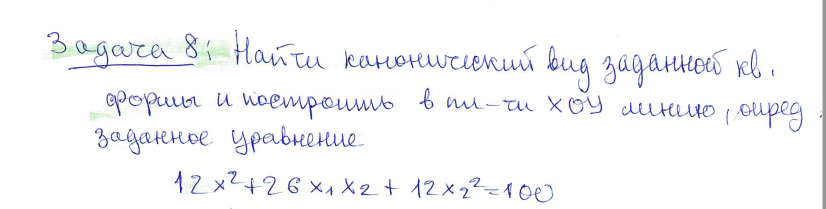 Задача 8: Найти канонический вид заданной кв.
формы и построить в пл-ти XOY линию, опред.
заданное уравнение
12x² + 26x₁x₂ + 12x₂² = 100